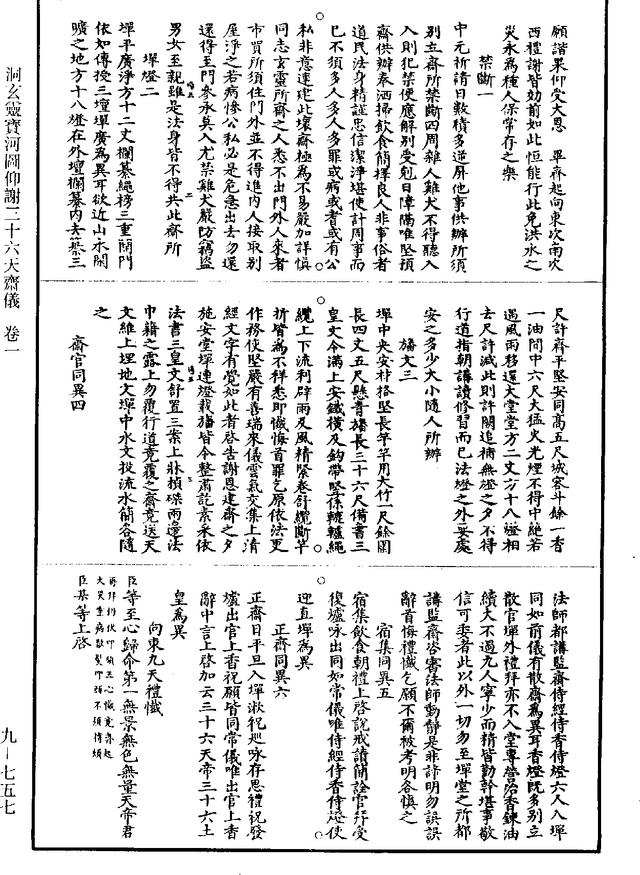 願諧果仰受大恩 畢齋起向東次南次
西禮謝皆効前如此恒能行此免洪水之
災永為種人保常存之樂
禁斷一
中元祈請日數積多道屏他事供辦所須
別立齋所禁斷四周雜人雞犬不得聽入
入則犯禁便應解別受剋日障隔唯堅須
齋供辦奉洒掃飲食簡擇良人非事俗者
道民法身精謹忠信潔淨堪使計周事而
已不須多人多人多罪或病或者或有公
私非意違建此壞齋極為不易嚴加詳慎
同志玄靈所齋之人悉不出門外人來者
市買所須住門外並不得進內人接取別
屋淨之若病慘公私必是危急出去勿還
還得至門參承莫入尤禁雞犬嚴防竊盜
男女至親雖是法身皆不得共此齋所
墠燈二
墠平廣淨方十二丈攔纂繩榜三重開門
依如傳授三壇墠廣為異耳欲近山水開
曠之地方十八燈在外壇攔纂內去纂三
尺計齊平堅安同高五尺城容斗餘一香
一油間中六尺大猛火光煙不得中絕若
遇風雨移還大堂堂方二丈方十八燈相
去尺許減此則許闕追補無燈之夕不得
行道指朝講讀修習而已法燈之外要處
安之多少大小隨人所辦
旛文三
墠中央安村格堅長竿竿用大竹一尺餘圍
長四丈五尺懸青旛長三十六尺備書三
皇文令滿上安鐵橫及鈎帶堅係轆轤繩
纜上下流利辟雨及風精緊卷舒纜斷竿
折皆為不祥悉即懺悔首罪乞原依法更
作務使堅嚴有善瑞來儀雲氣交集上清
經文字有覺如此者啓告謝恩建齋之夕
施安堂墠連燈栽旛皆令整肅訖素采依
法書三皇文舒置三案上牀楨磔兩邊法
巾籍之露上勿覆行道竟覆之齋竟送天
文維上埋地文墠中水文投流水簡各隨
之
齋官同異四
法師都講監齋侍經侍香侍燈六人入墠
同如前儀有散齋為異耳香燈既多別立
散官墠外禮拜亦不入堂專營爇香鍊油
續火不過九人寧少而精皆勤幹堪事敬
信可委者此以外一切勿至墠堂之所都
講監齋咨審法師動靜是非諦明勿誤誤
辭首悔禮懺乞願不爾被考明各慎之
宿集同異五
宿集飲食朝禮上啓說戒讀簡詮官拜受
復爐咏出同如常儀唯侍經侍香侍燈使
迎直墠為異
正齋同異六
正齋日平旦入墠漱祝巡咏存思禮祝發
爐出官上香祝願皆同常儀唯出官上香
辭中言上啓加云三十六天帝三十六土
皇為異
向東九天禮懺
臣等至心歸命第一無景無色無量天帝君
臣某等上啓
洞玄靈寶河圖仰謝三十六天齋儀 卷一
九－七五七